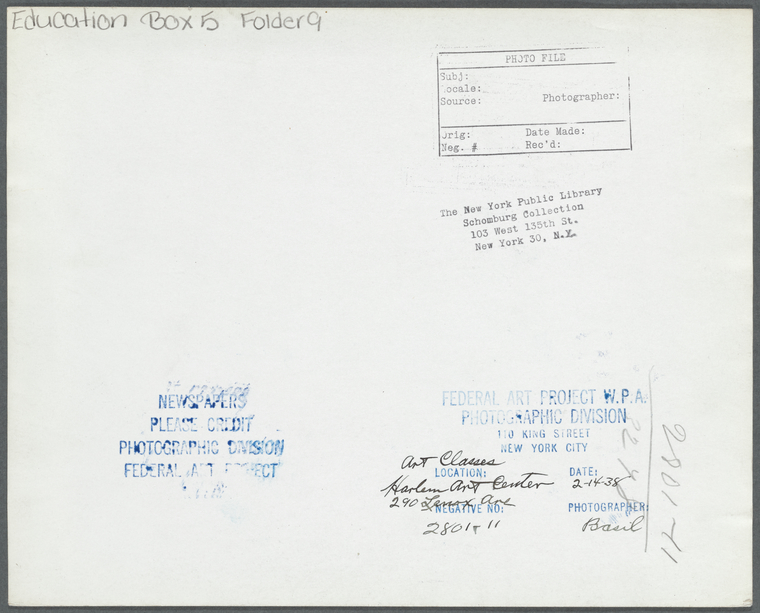 Education Box 5 Folder 9
PHOTO FILE
Subj:
ocale:
Source: Photographer:
rig: Date Made:
Neg. # Rec'd:
The New York Public Library
Schomburg Collection
103 West 135th St.
New York 30, N.Y.
NEWSPAPERS
PLEASE CREDIT
PHOTOGRAPHIC DIVISION
FEDERAL ART PROJECT
FEDERAL ART PROJECT W.P.A.
PHOTOGRAPHIC DIVISION
110 KING STREET
NEW YORK CITY
Art Classes
LOCATION: DATE:
Harlem Art Center 2-14-38
290 Lenox Ave
NEGATIVE NO: PHOTOGRAPHER:
Basil
2801-11